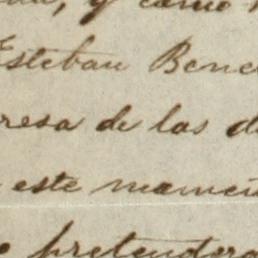 y como
Esteban Bene
resa de las d
este momen
pretender